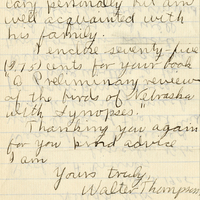 personally but am
well acquainted with
his family.
I enclose seventy-five
(.75) cents for your book
"Preliminary review
of the birds of Nebraska
with Synopses.
Thanking you again
for you kind advice
I am
Yours truly,
Walter Thompson